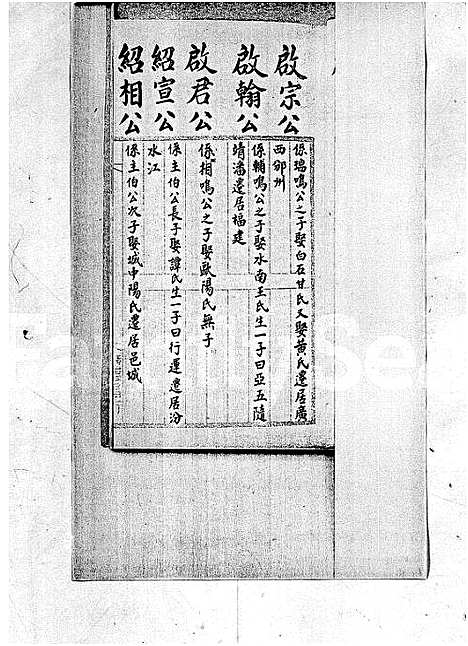 啟宗公
係瑞鳴公之子娶白石甘氏又娶黃氏遷居廣
西邠州
啟翰公
係輔鳴公之子娶水南王氏生一子曰亞五隨
靖潘遷居福建
啟君公
係相鳴公之子娶歐陽氏無子
紹宣公
係主伯公長子娶譚氏生一子曰行運遷居汾
水江
紹相公
係主伯公次子娶城中陽氏遷居邑城